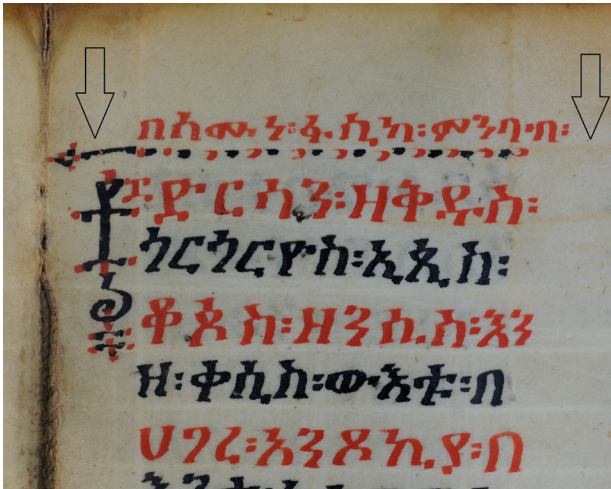 በሰሙነ፡ፋሲካ፡ምንባብ፡
ድርሳን፡ዘቅዱስ፡
ጎርጎርዮስ፡ኢጲስ፡
ቆጶስ፡ዘንሲስ፡እን
ዘ፡ቀሲስ፡ውእቱ፡በ
ሀገረ፡አንጾኪያ፡በ